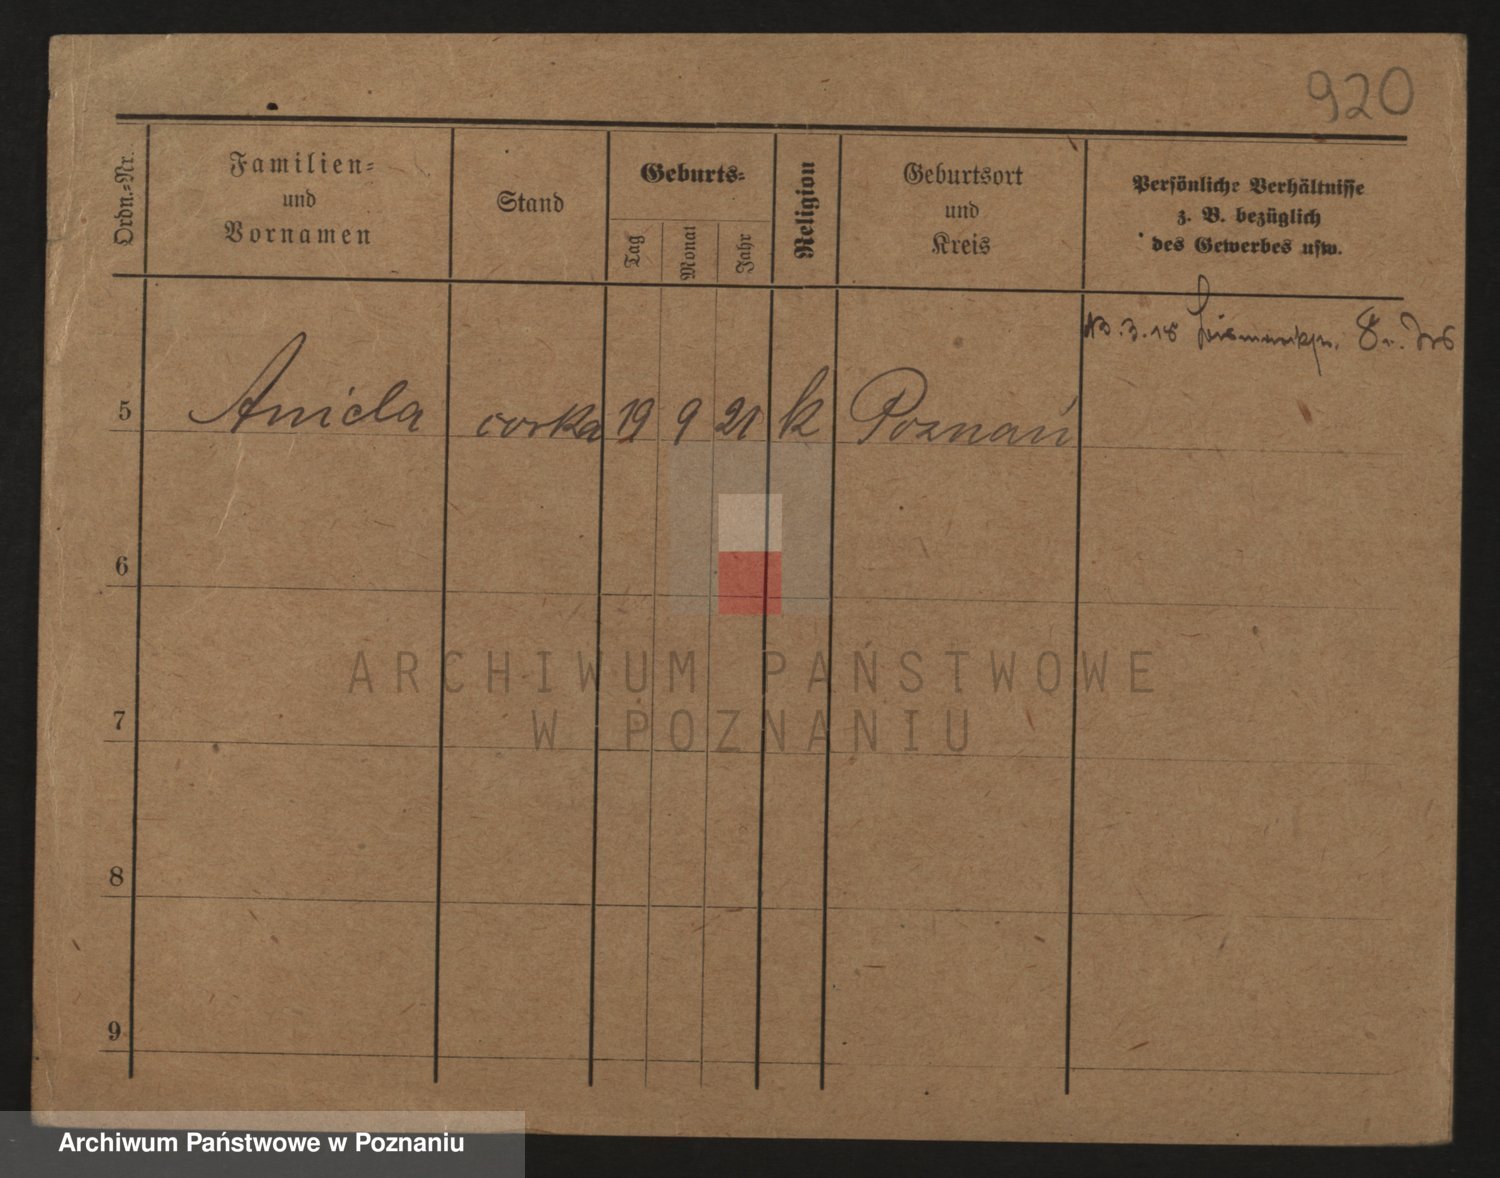 920
Ordn.=Nr.
Familien=
und
Vornamen
Stand
Geburts=
Tag
Monat
Jahr
Religion
Geburtsort
und
Kreis
Persönliche Verhältnisse
z. B. bezüglich
des Gewerbes usw.
5 Anicla corka 19 9 21 k Poznań
6
7
8
9
ARCHIWUM PAŃSTWOWE
W POZNANIU
Archiwum Państwowe w Poznaniu